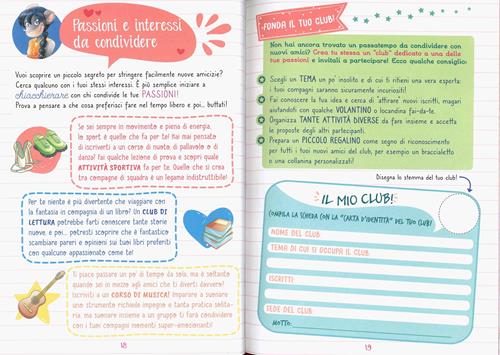 Passioni e interessi
da condividere
Vuoi scoprire un piccolo segreto per stringere facilmente nuove amicizie?
Cerca qualcuno con i tuoi stessi interessi. È più semplice iniziare a
chiacchierare con chi condivide le tue PASSIONI!
Prova a pensare a che cosa preferisci fare nel tempo libero e poi... buttati!
Se sei sempre in movimento e piena di energia,
lo sport è quello che fa per te! Hai mai pensato
di iscriverti a un corso di nuoto, di pallavolo o di
danza? Fai qualche lezione di prova e scopri quale
ATTIVITÀ SPORTIVA fa per te. Quello che si crea
tra compagne di squadra è un legame indistruttibile!
Per te niente è più divertente che viaggiare con
la fantasia in compagnia di un libro? Un CLUB DI
LETTURA potrebbe farti conoscere tante storie
nuove, e poi... potresti scoprire che è fantastico
scambiare pareri e opinioni sui tuoi libri preferiti
con qualcuno appassionato come te!
Ti piace passare un po' di tempo da sola, ma è soltanto
quando sei in mezzo agli amici che ti diverti davvero?
Iscriviti a un CORSO DI MUSICA! Imparare a suonare
uno strumento richiede impegno e tanta pratica solita-
ria, ma suonare insieme a un gruppo ti farà condividere
con i tuoi compagni momenti super-emozionanti!
18
¡FONDA IL TUO CLUB!
Non hai ancora trovato un passatempo da condividere con
nuovi amici? Crea tu stessa un "club" dedicato a una delle
tue passioni e invitali a partecipare! Ecco qualche consiglio:
Scegli un TEMA un po' insolito e di cui ti rifieni una vera esperta:
i tuoi compagni saranno sicuramente incuriositi!
Fai conoscere la tua idea e cerca di 'attirare' nuovi iscritti, magari
aiutandoti con qualche VOLANTINO o locandina fai-da-te.
Organizza TANTE ATTIVITÀ DIVERSE da fare insieme e accetta
le proposte degli altri partecipanti.
Prepara un PICCOLO REGALINO come segno di riconoscimento
per tutti i tuoi nuovi amici del club, per esempio un braccialetto
o una collanina personalizzati!
Disegna lo stemma del tuo club!
IL MIO CLUB!
COMPILA LA SCHEDA CON LA "CARTA D'IDENTITÀ" DEL TUO CLUB!
NOME DEL CLUB:
TEMA DI CUI SI OCCUPA IL CLUB:
ISCRITTI:
SEDE DEL CLUB:
MOTTO:
19